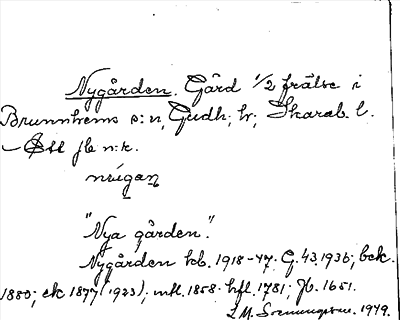 Nygården. Gård 1/2 frälse i
Brunnhems s:n, Gudh. hr; Skarab. l.
— Ett jb n:k.
nýgaṇ
"Nya gården".
Nygården kb. 1918-47; G. 43. 1936; bek.
1880; ek 1877 (1923); mtl. 1858; hfl. 1781; Jb. 1651.
1949.